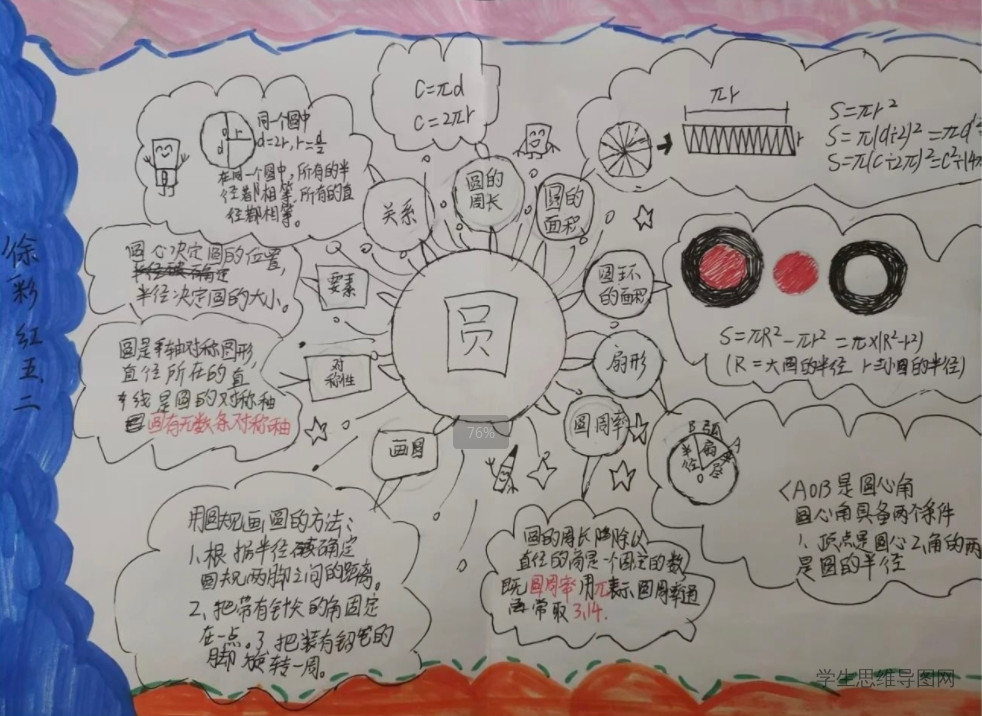 徐彩红五、二
同一个圆中
d=2r, r=d/2
在同一个圆中,所有的半
径都相等,所有的直
径都相等。
关系
C=πd
C=2πr
圆的
周长
πr
r
S=πr²
S=π(d÷2)²=πd²
S=π(C÷2π)²=C²÷(4π
圆的
面积
圆心决定圆的位置,
半径决定圆的大小。
要素
圆
圆环
的面积
S=πR²-πr²=π×(R²-r²)
(R=大圆的半径 r=小圆的半径)
圆是轴对称图形
直径所在的直
线是圆的对称轴
圆有无数条对称轴
对
称性
扇形
B 弧 A
半径
扇形
O
<AOB是圆心角
圆心角具备两个条件
1、顶点是圆心2、角的两
是圆的半径
画圆
用圆规画圆的方法:
1、根据半径确定
圆规两脚之间的距离。
2、把带有针尖的角固定
在一点。3、把装有铅笔的
脚旋转一周。
圆周率
圆的周长除以
直径的商是一个固定的数
既圆周率用π表示,圆周率通
常取3.14.
76%
学生思维导图网